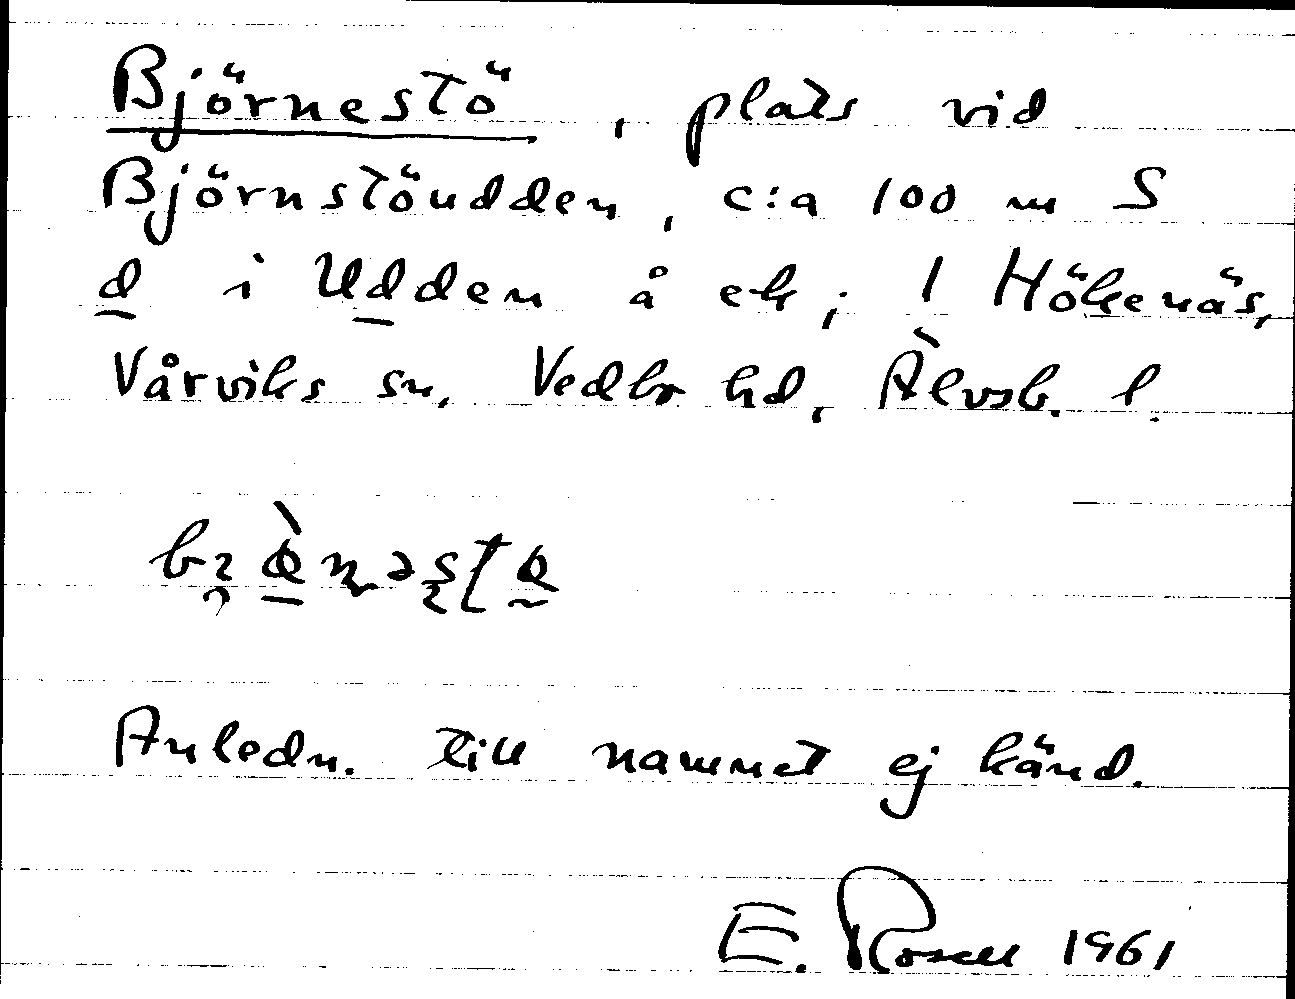 Björnestö, plats vid
Björnstöudden, c:a 100 m S
d i Udden å ek; 1 Hökenäs,
Vårviks sn, Vedbo hd, Älvsb. l.
Anledn. till namnet ej känd.
E. Rosell 1961